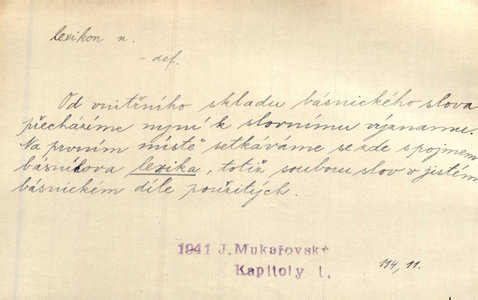 lexikon n.
- def.
Od vnitřního skladu básnického slova
přecházíme nyní k slovnímu významu.
Na prvním místě setkáváme se zde s pojmem
básníkova lexika, totiž souboru slov v jistém
básnickém díle použitých.
1941 J. Mukařovský
Kapitoly I.
114, 11.